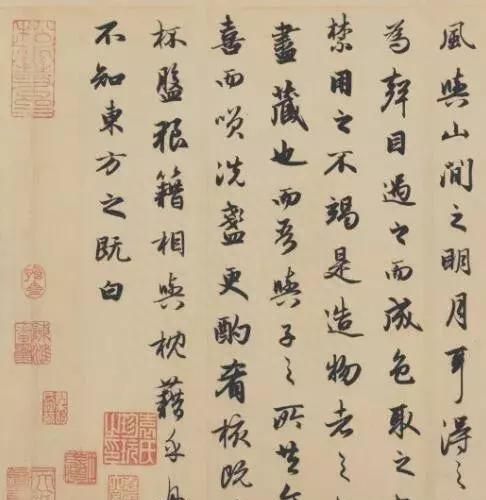 風與山間之明月耳得之
為聲目遇之而成色取之
禁用之不竭是造物者之
盡藏也而吾與子之所共
喜而笑洗盞更酌肴核既
杯盤狼籍相與枕藉乎舟
不知東方之既白